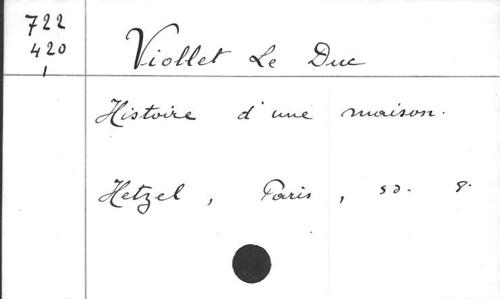 722
420
1
Viollet Le Duc
Histoire d'une maison.
Hetzel, Paris, sd. 8.